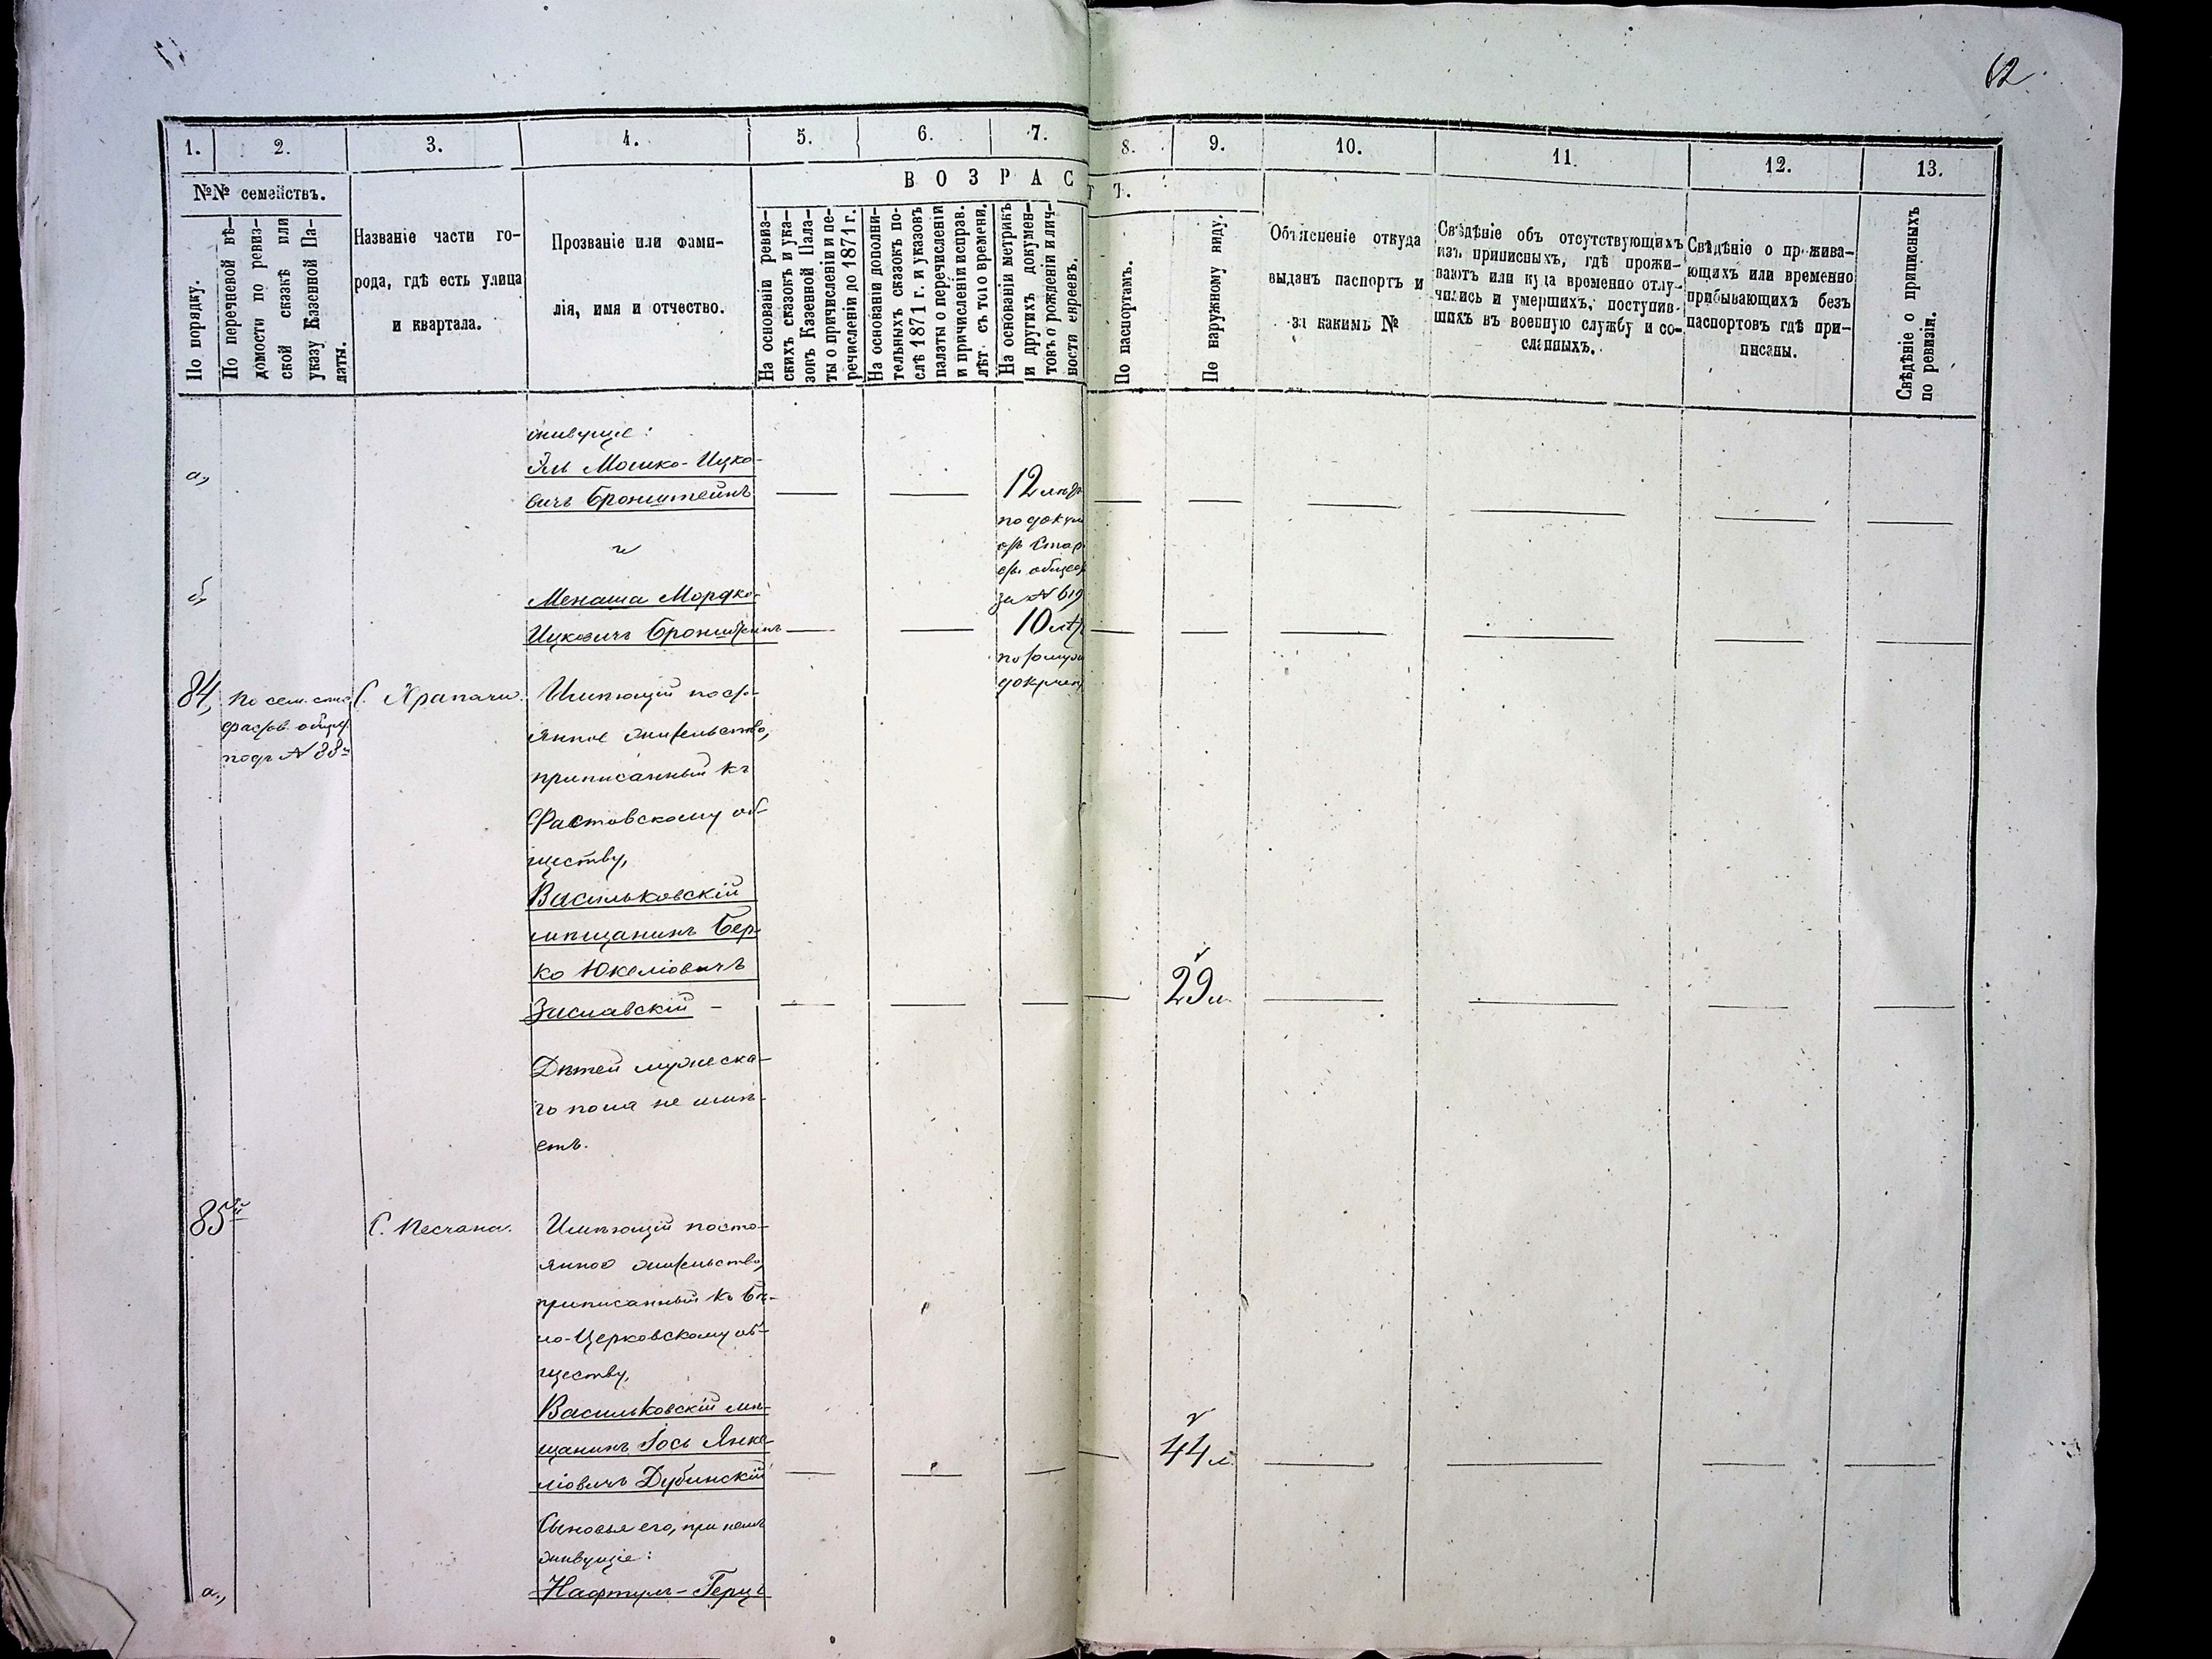 62.
1.
2.
3.
4.
5.
6.
7.
8.
9.
10.
11.
12.
13.
№№ семействъ.
ВОЗРАС
ТЪ.
По порядку.
По перечневой вѣ-
домости по ревиз-
ской сказкѣ или
указу Казенной Па-
латы.
Названіе части го-
рода, гдѣ есть улица
и квартала.
Прозваніе или фами-
лія, имя и отчество.
На основаніи ревиз-
скихъ сказокъ и ука-
зовъ Казенной Пала-
ты о причисленіи и пе-
речисленіи до 1871 г.
На основаніи дополни-
тельныхъ сказокъ по-
слѣ 1871 г. и указовъ
палаты о перечисленіи
и причисленіи исправ.
лѣт. съ того времени.
На основаніи метрикъ
и другихъ докумен-
товъ о рожденіи и лич-
ности евреевъ.
По паспортамъ.
По наружному виду.
Объясненіе откуда
выданъ паспортъ и
за какимъ №
Свѣдѣніе объ отсутствующихъ
изъ приписныхъ, гдѣ прожи-
ваютъ или куда временно отлу-
чились и умершихъ, поступив-
шихъ въ военную службу и со-
сланныхъ.
Свѣдѣніе о прожива-
ющихъ или временно
прибывающихъ безъ
паспортовъ гдѣ при-
писаны.
Свѣдѣніе о приписныхъ
по ревизіи.
живущіе:
а,
Эль Мошко-Ицко-
вичъ Бронштейнъ
12 лѣтъ
по докум
отъ Став
общес
за № 619
и
б,
Менаша Мордко-
Ицковичъ Бронштейнъ
10 лѣт
по
докумен
84,
По сем. спис
Фастов. общес.
подъ № 88
С. Храпачи.
Имѣющій посто-
янное жительство,
приписанный къ
Фастовскому об-
ществу,
Васильковскій
мѣщанинъ Бер-
ко Юкеліовичъ
Заславскій –
29 л.
Дѣтей мужеска-
го пола не имѣ-
етъ.
85й
С. Песчана.
Имѣющій посто-
янное жительство,
приписанный къ Бѣ-
ло-Церковскому об-
ществу,
Васильковскій мѣ-
щанинъ Іось Янке-
ліовичъ Дубинскій
44 л.
Сыновья его, при немъ
живущіе:
а.,
Нафтулъ-Герцъ